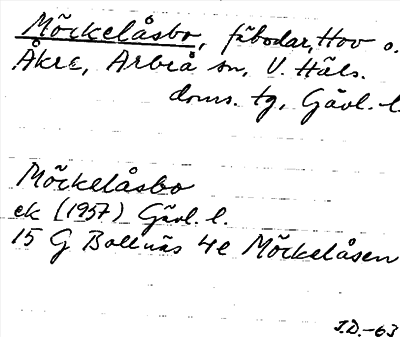 Möckelåsbo, fäbodar, Hov o.
Åkre, Arbrå sn, V. Häls.
doms. tg, Gävl. l.
Möckelåsbo
ek (1957) Gävl. l.
15 G Bollnäs 4e Möckelåsen
J.D.-63